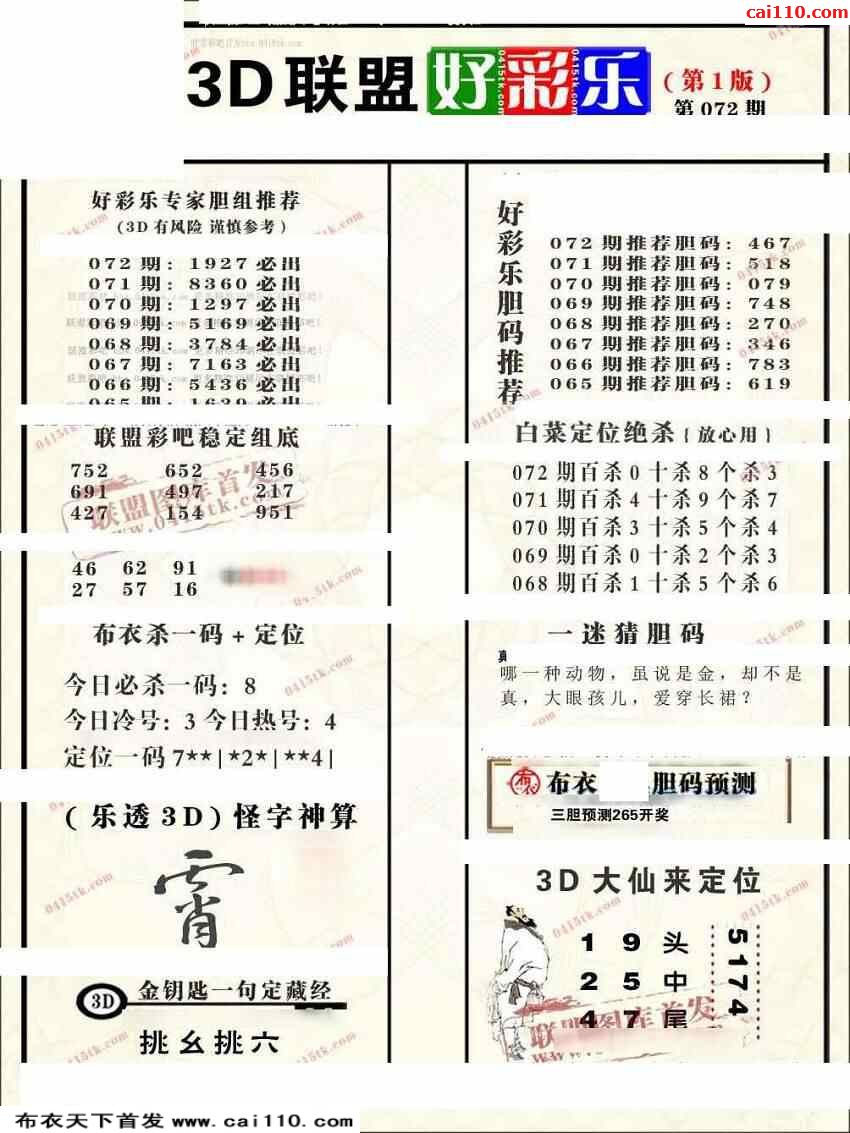 cai110.com
3D联盟 好彩乐 (第1版)
第072期
好彩乐专家胆组推荐
(3D有风险 谨慎参考)
072期: 1927必出
071期: 8360必出
070期: 1297必出
069期: 5169必出
068期: 3784必出
067期: 7163必出
066期: 5436必出
065期: 1639必出
联盟彩吧稳定组底
752 652 456
691 497 217
427 154 951
联盟图库首发
www.0415tk.com
46 62 91
27 57 16
布衣杀一码+定位
今日必杀一码: 8
今日冷号: 3 今日热号: 4
定位一码 7**|*2*|**4|
(乐透3D)怪字神算
霄
3D 金钥匙一句定藏经
挑幺挑六
好彩乐胆码推荐
072期推荐胆码: 467
071期推荐胆码: 518
070期推荐胆码: 079
069期推荐胆码: 748
068期推荐胆码: 270
067期推荐胆码: 346
066期推荐胆码: 783
065期推荐胆码: 619
白菜定位绝杀{放心用}
072期百杀0十杀8个杀3
071期百杀4十杀9个杀7
070期百杀3十杀5个杀4
069期百杀0十杀2个杀3
068期百杀1十杀5个杀6
一迷猜胆码
哪一种动物，虽说是金，却不是
真，大眼孩儿，爱穿长裙？
布衣 胆码预测
三胆预测265开奖
3D大仙来定位
1 9 头
2 5 中
4 7 尾
5174
联盟图库首发
布衣天下首发 www.cai110.com